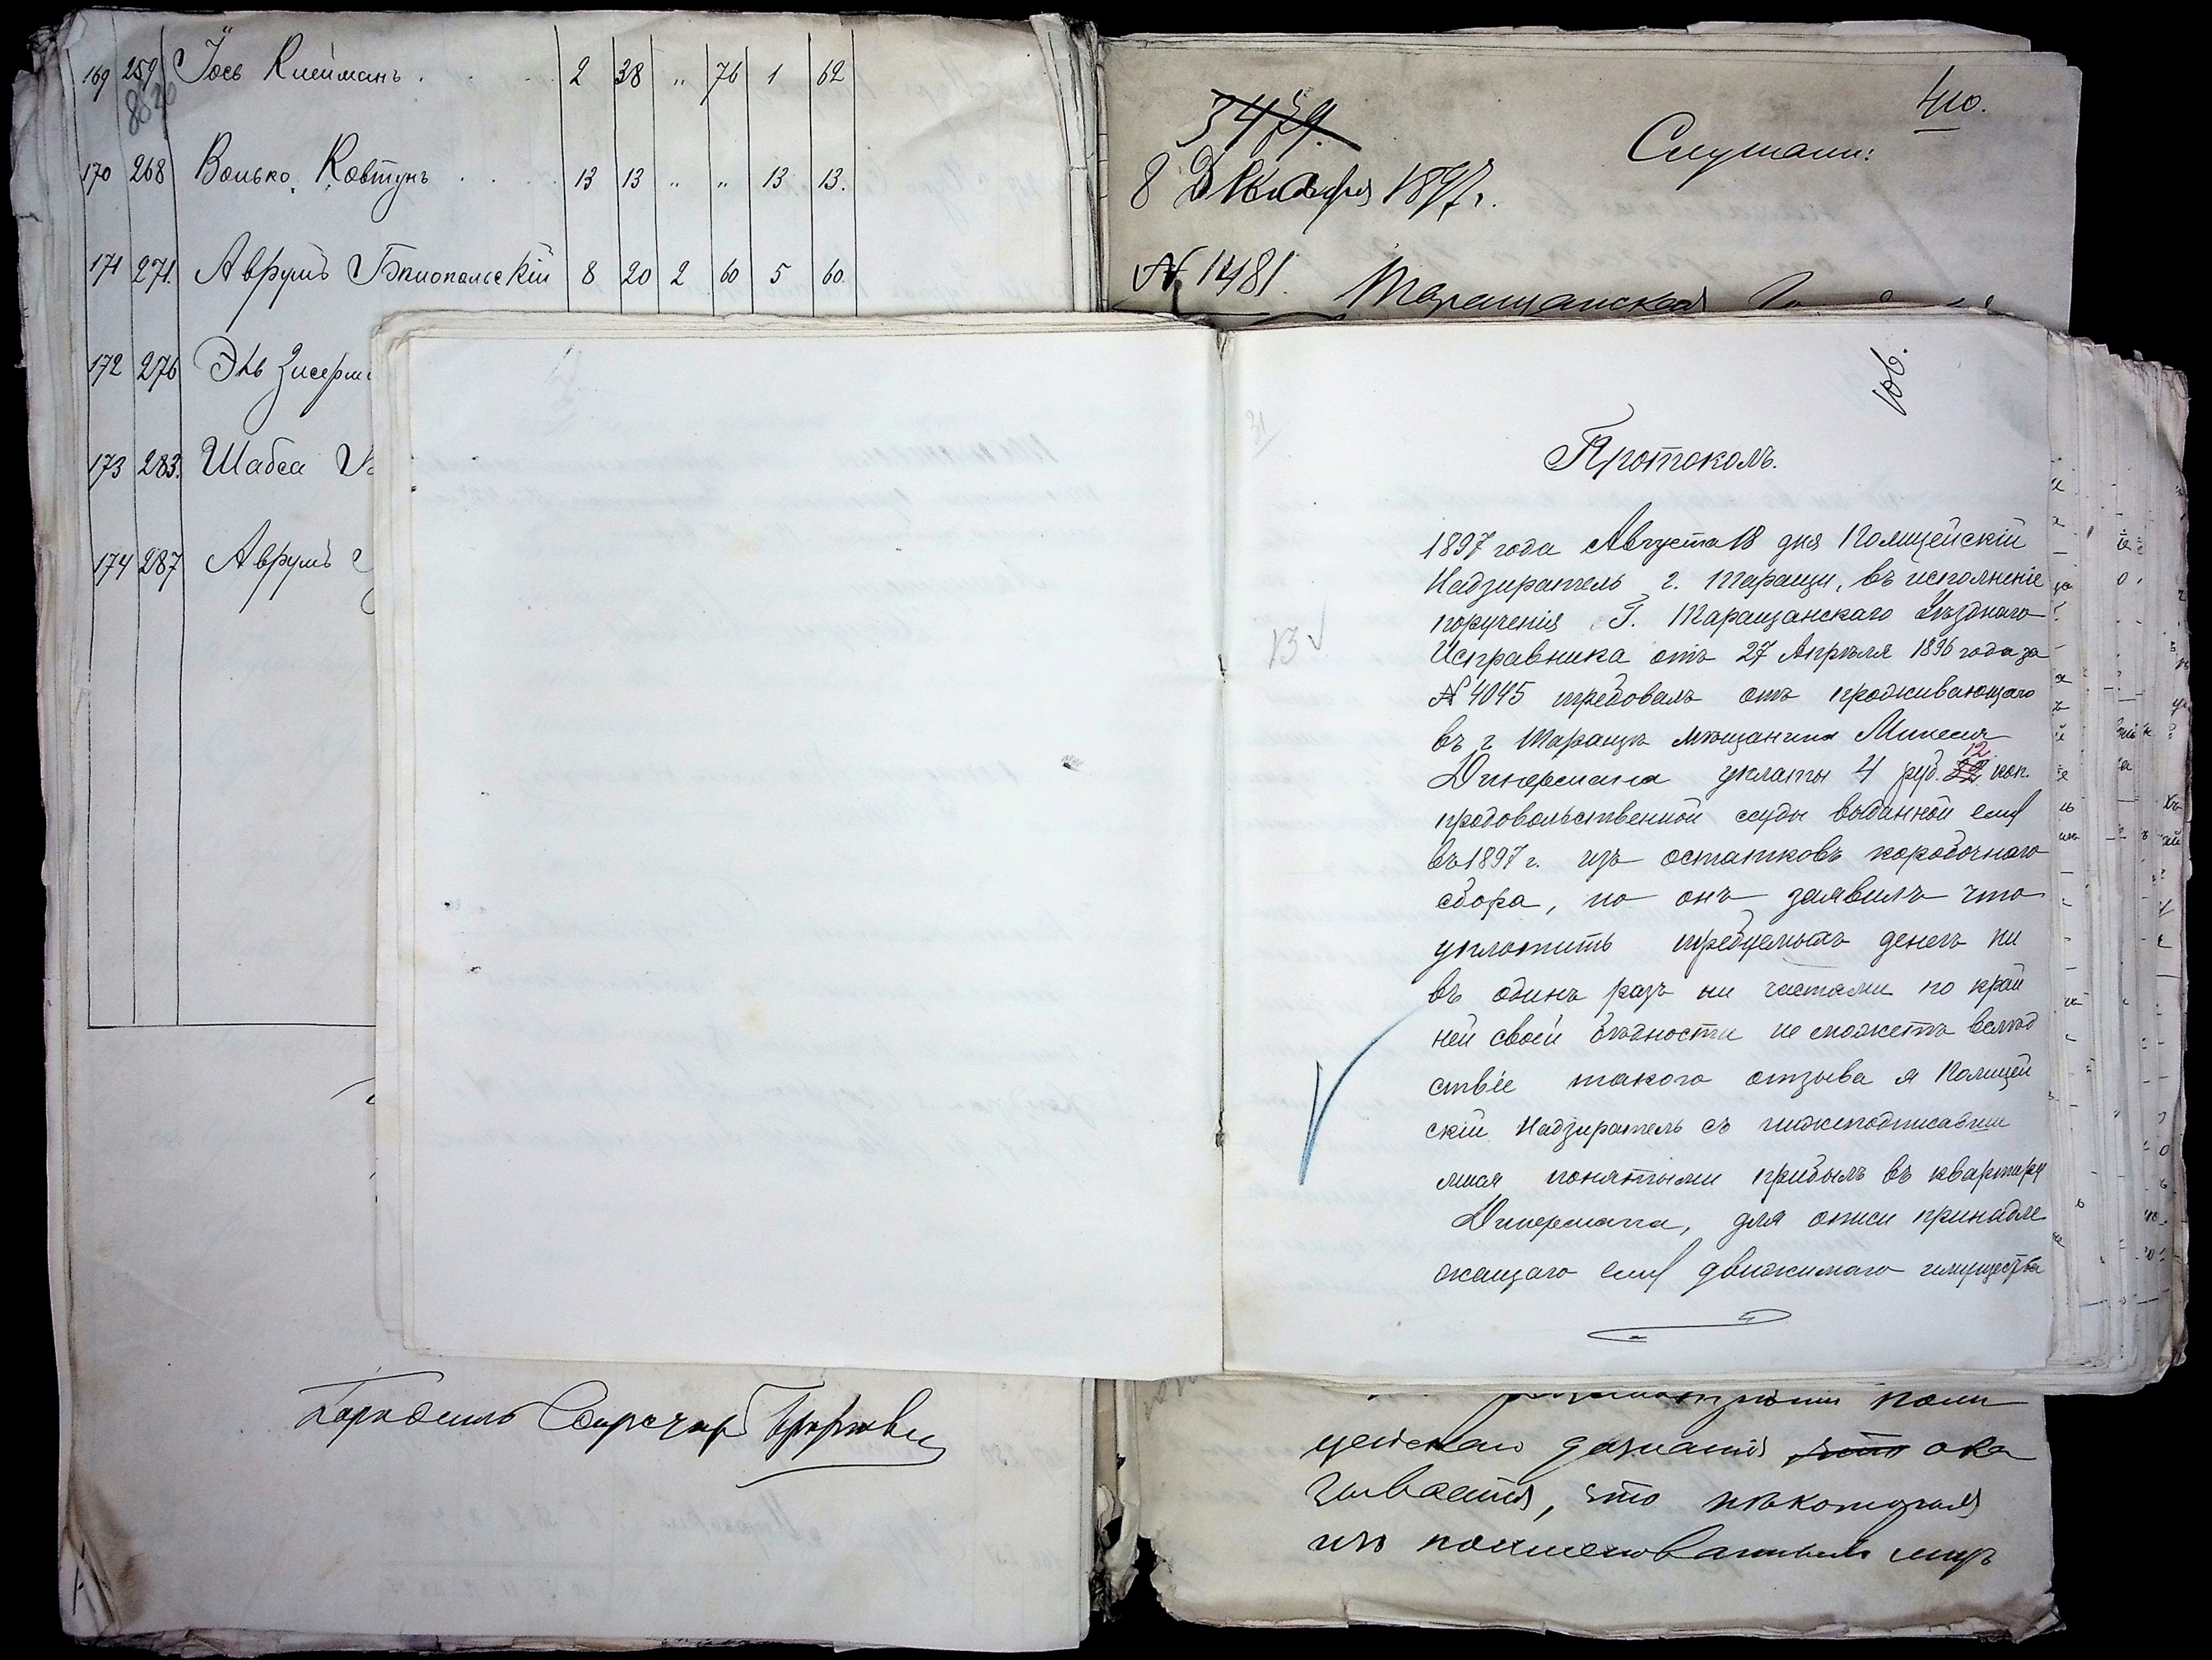 169 259 Іось Клейманъ . . . 2 38 „ 76 1 62
170 268 Волько Ковтунъ . . . 13 13 „ „ 13 13.
171 271. Аврумъ Бѣлопольскій 8 20 2 60 5 60.
172 276
173 283. Шабса
174 287 Аврумъ
410.
3479.
Слушали:
8 Декабря 1897 г.
№ 1481.
Таращанская
106.
31
Протоколъ.
1897 года Августа 18 дня Полицейскій
Надзиратель г. Таращи, въ исполненіе
порученія Г. Таращанскаго Уѣзднаго
13 √
Исправника отъ 27 Апрѣля 1896 года за
№ 4045 требовалъ отъ проживающаго
въ г Таращѣ мѣщанина
Динермана уплаты 4 руб. 12 коп.
продовольственной ссуды выданной ему
въ 1897 г. изъ остатковъ коробочнаго
сбора, но онъ заявилъ что
уплатить требуемыхъ денегъ ни
въ одинъ разъ ни частями по край
ней своей бѣдности не можетъ вслѣд
ствіе такого отзыва я Полицей
скій Надзиратель съ нижеподписавши
мися понятыми прибылъ въ квартиру
Динермана, для описи принадле
жащаго ему движимаго имущества
поли
цейскаго дознанія ока
зывается, что нѣкоторыя
изъ поименованныхъ лицъ